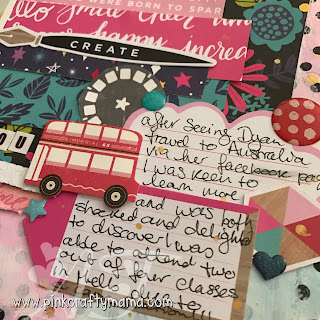 WERE BORN TO SPAR
hello smile cheer
happy incredi
CREATE
OU
IMPERIAL
after seeing Dyan
travel to Australia
via her facebook pag
I was keen to
learn more
and was both
shocked and delight
to discover I was
able to attend two
out of four classes
in Hello
www.pinkcraftymama.com